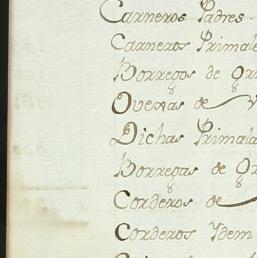 Carneros Padres
Carneros Primale
Borregos de
Ovexas de
Dichas Primala
Borregas de
Corderos de
Corderos Ydem